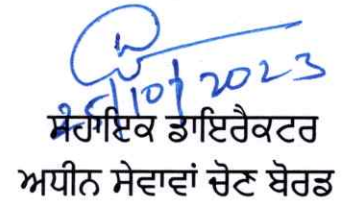 25/10/2023
ਸਹਾਇਕ ਡਾਇਰੈਕਟਰ
ਅਧੀਨ ਸੇਵਾਵਾਂ ਚੋਣ ਬੋਰਡ